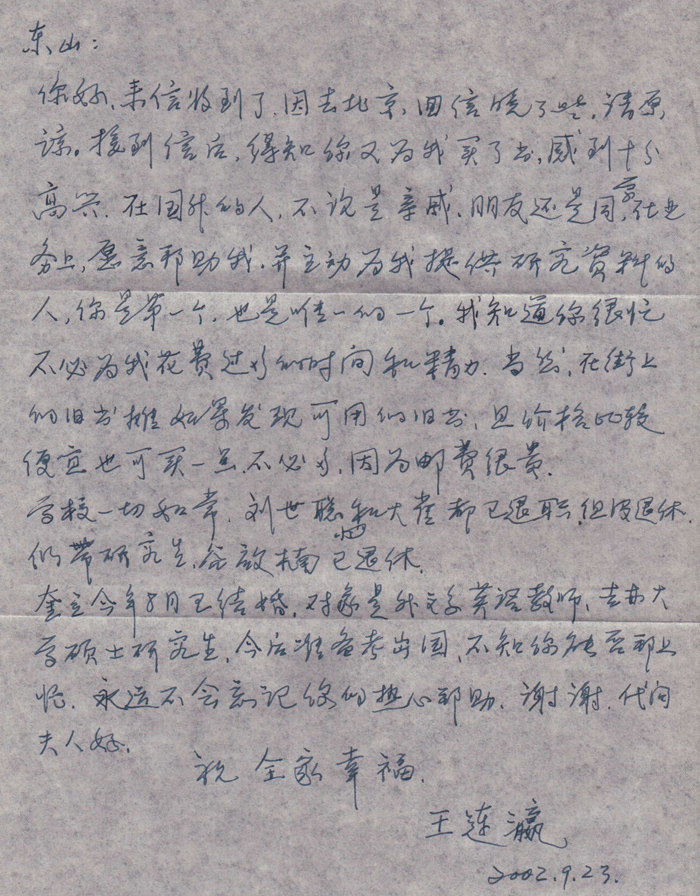 东山：
你好，来信收到了，因去北京，回信晚了些，请原
谅。接到信后，得知你又为我买了书，感到十分
高兴。在国外的人，不论是亲戚、朋友还是同学，在业
务上，愿意帮助我，并主动为我提供研究资料的
人，你是第一个，也是唯一的一个。我知道你很忙
不必为我花费过多的时间和精力。当然，在街上
的旧书摊如果发现可用的旧书，且价格比较
便宜也可买一点，不必多，因为邮费很贵。
学校一切如常，刘世聪和大崔都已退职，但没退休，
仍带研究生， 已退休。
奎立今年8月已结婚，对象是外文系英语教师，吉林大
学硕士研究生，今后准备考出国，不知你能否帮上
忙。永远不会忘记你的热心帮助。谢谢。代问
夫人好。
祝全家幸福。
王连瀛
2002.9.23.